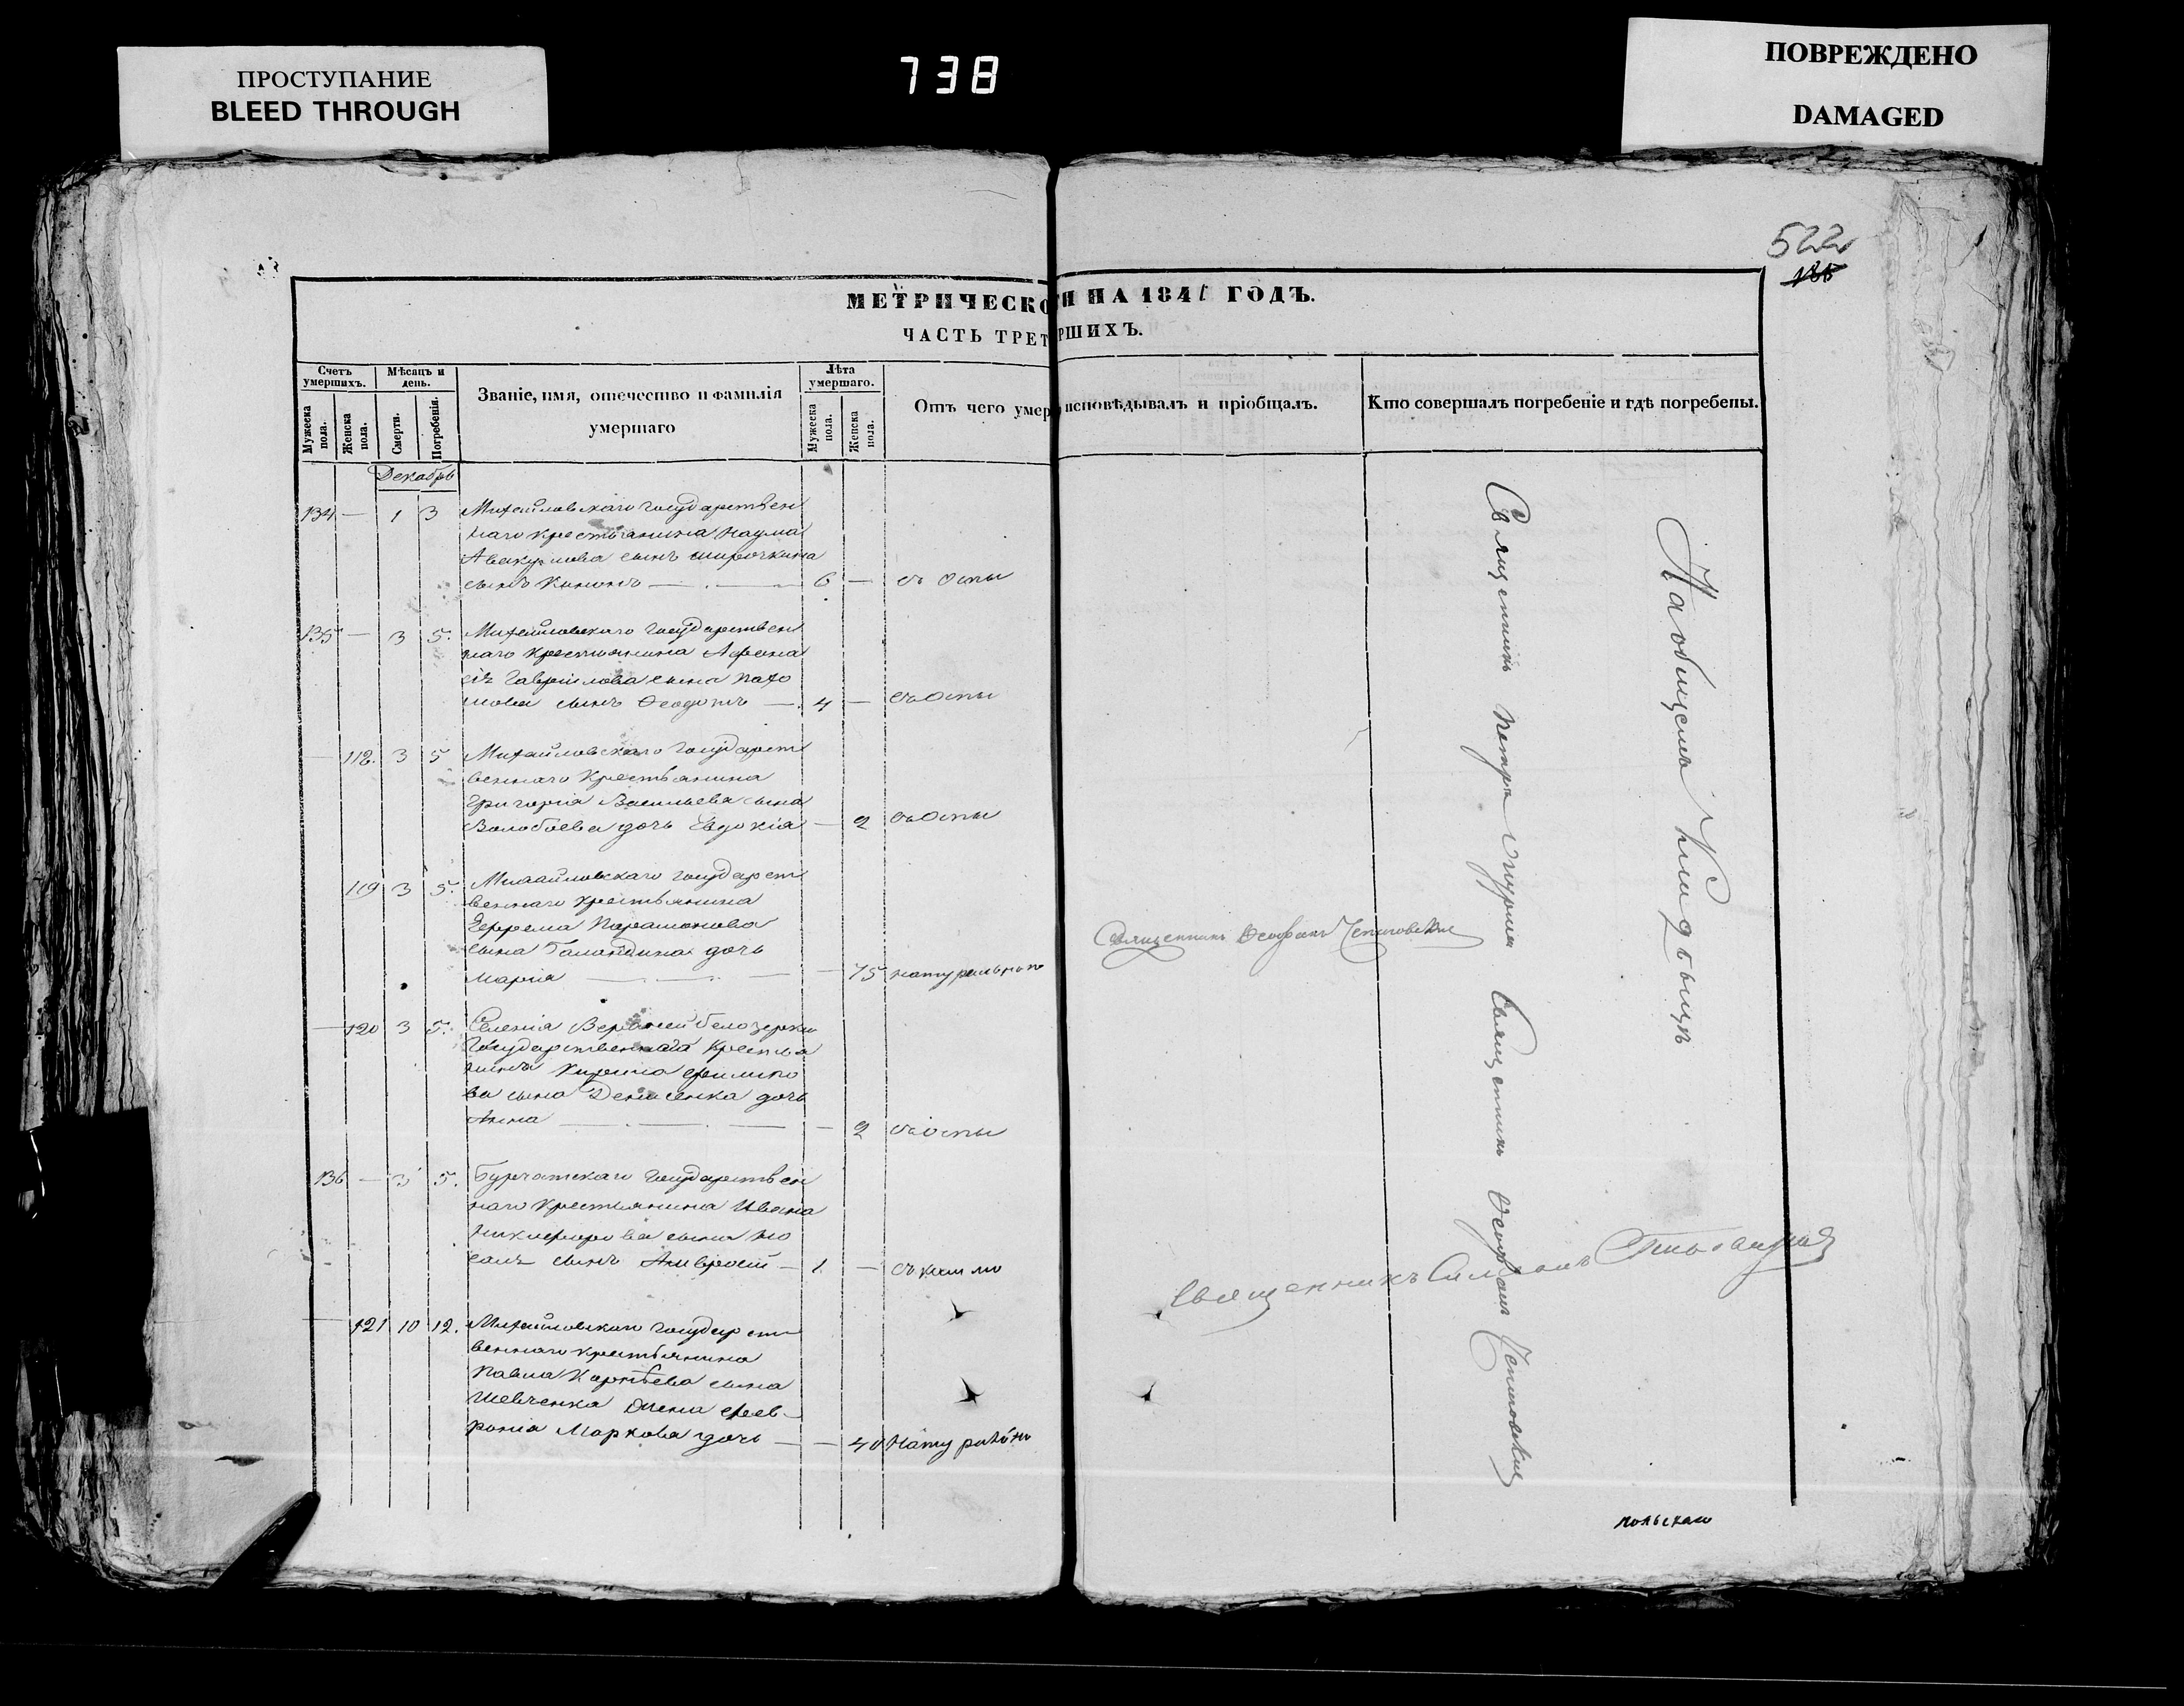 ПРОСТУПАНИЕ
BLEED THROUGH
738
ПОВРЕЖДЕНО
DAMAGED
522
МЕТРИЧЕСКО
Й НА 1841 ГОДЪ.
ЧАСТЬ ТРЕТ
РШИХЪ.
Счетъ умершихъ.
Мужеска пола.
Женска пола.
Мѣсацъ и день.
Смерти.
Погребенія.
Званіе, имя, отечество и фамилія
умершаго
Лѣта умершаго.
Мужеска пола.
Женска пола.
Отъ чего умер
исповѣдывалъ и пріобщалъ.
Кто совершалъ погребеніе и гдѣ погребены.
Декабрь
134 — 1 3 Михайловскаго государствен
наго крестьянина Наума
Авакумова сынъ Широчкина
сынъ Кононъ — 6 — съ оспы
135 — 3 5. Михайловскаго государствен
наго крестьянина Афана
сія Гаврилова сына Пахо
мова сынъ Ѳеодотъ — 4 — съ оспы
— 118. 3 5 Михайловскаго государст
веннаго крестьянина
Григорія Васильева сына
Волобоева дочь Евдокія — 2 съ оспы
119 3 5. Михайловскаго государст
веннаго крестьянина
Ефрема Парамонова
сына Баландина дочь
Марія — — 75 натурально
— 120 3 5. Селенія Верхней Белозерки
государственнаго крестья
нина Кирила Филипо
ва сына Денисенка дочь
Анна — — 2 съ оспы
136 — 3 5. Бурчатскаго государствен
наго крестьянина Ивана
Никифорова сына Но
сань сынъ Амвросій — 1 — съ кашлю
— 121 10 12. Михайловскаго государст
веннаго крестьянина
Павла Карпѣева сына
Шевченка жена Фев
ронія Маркова дочь — — 40 натурально
Священникъ Ѳеофанъ
Священникъ Петръ
Священникъ Ѳеофанъ
На общемъ Кладбищѣ
Священникъ
польскаго